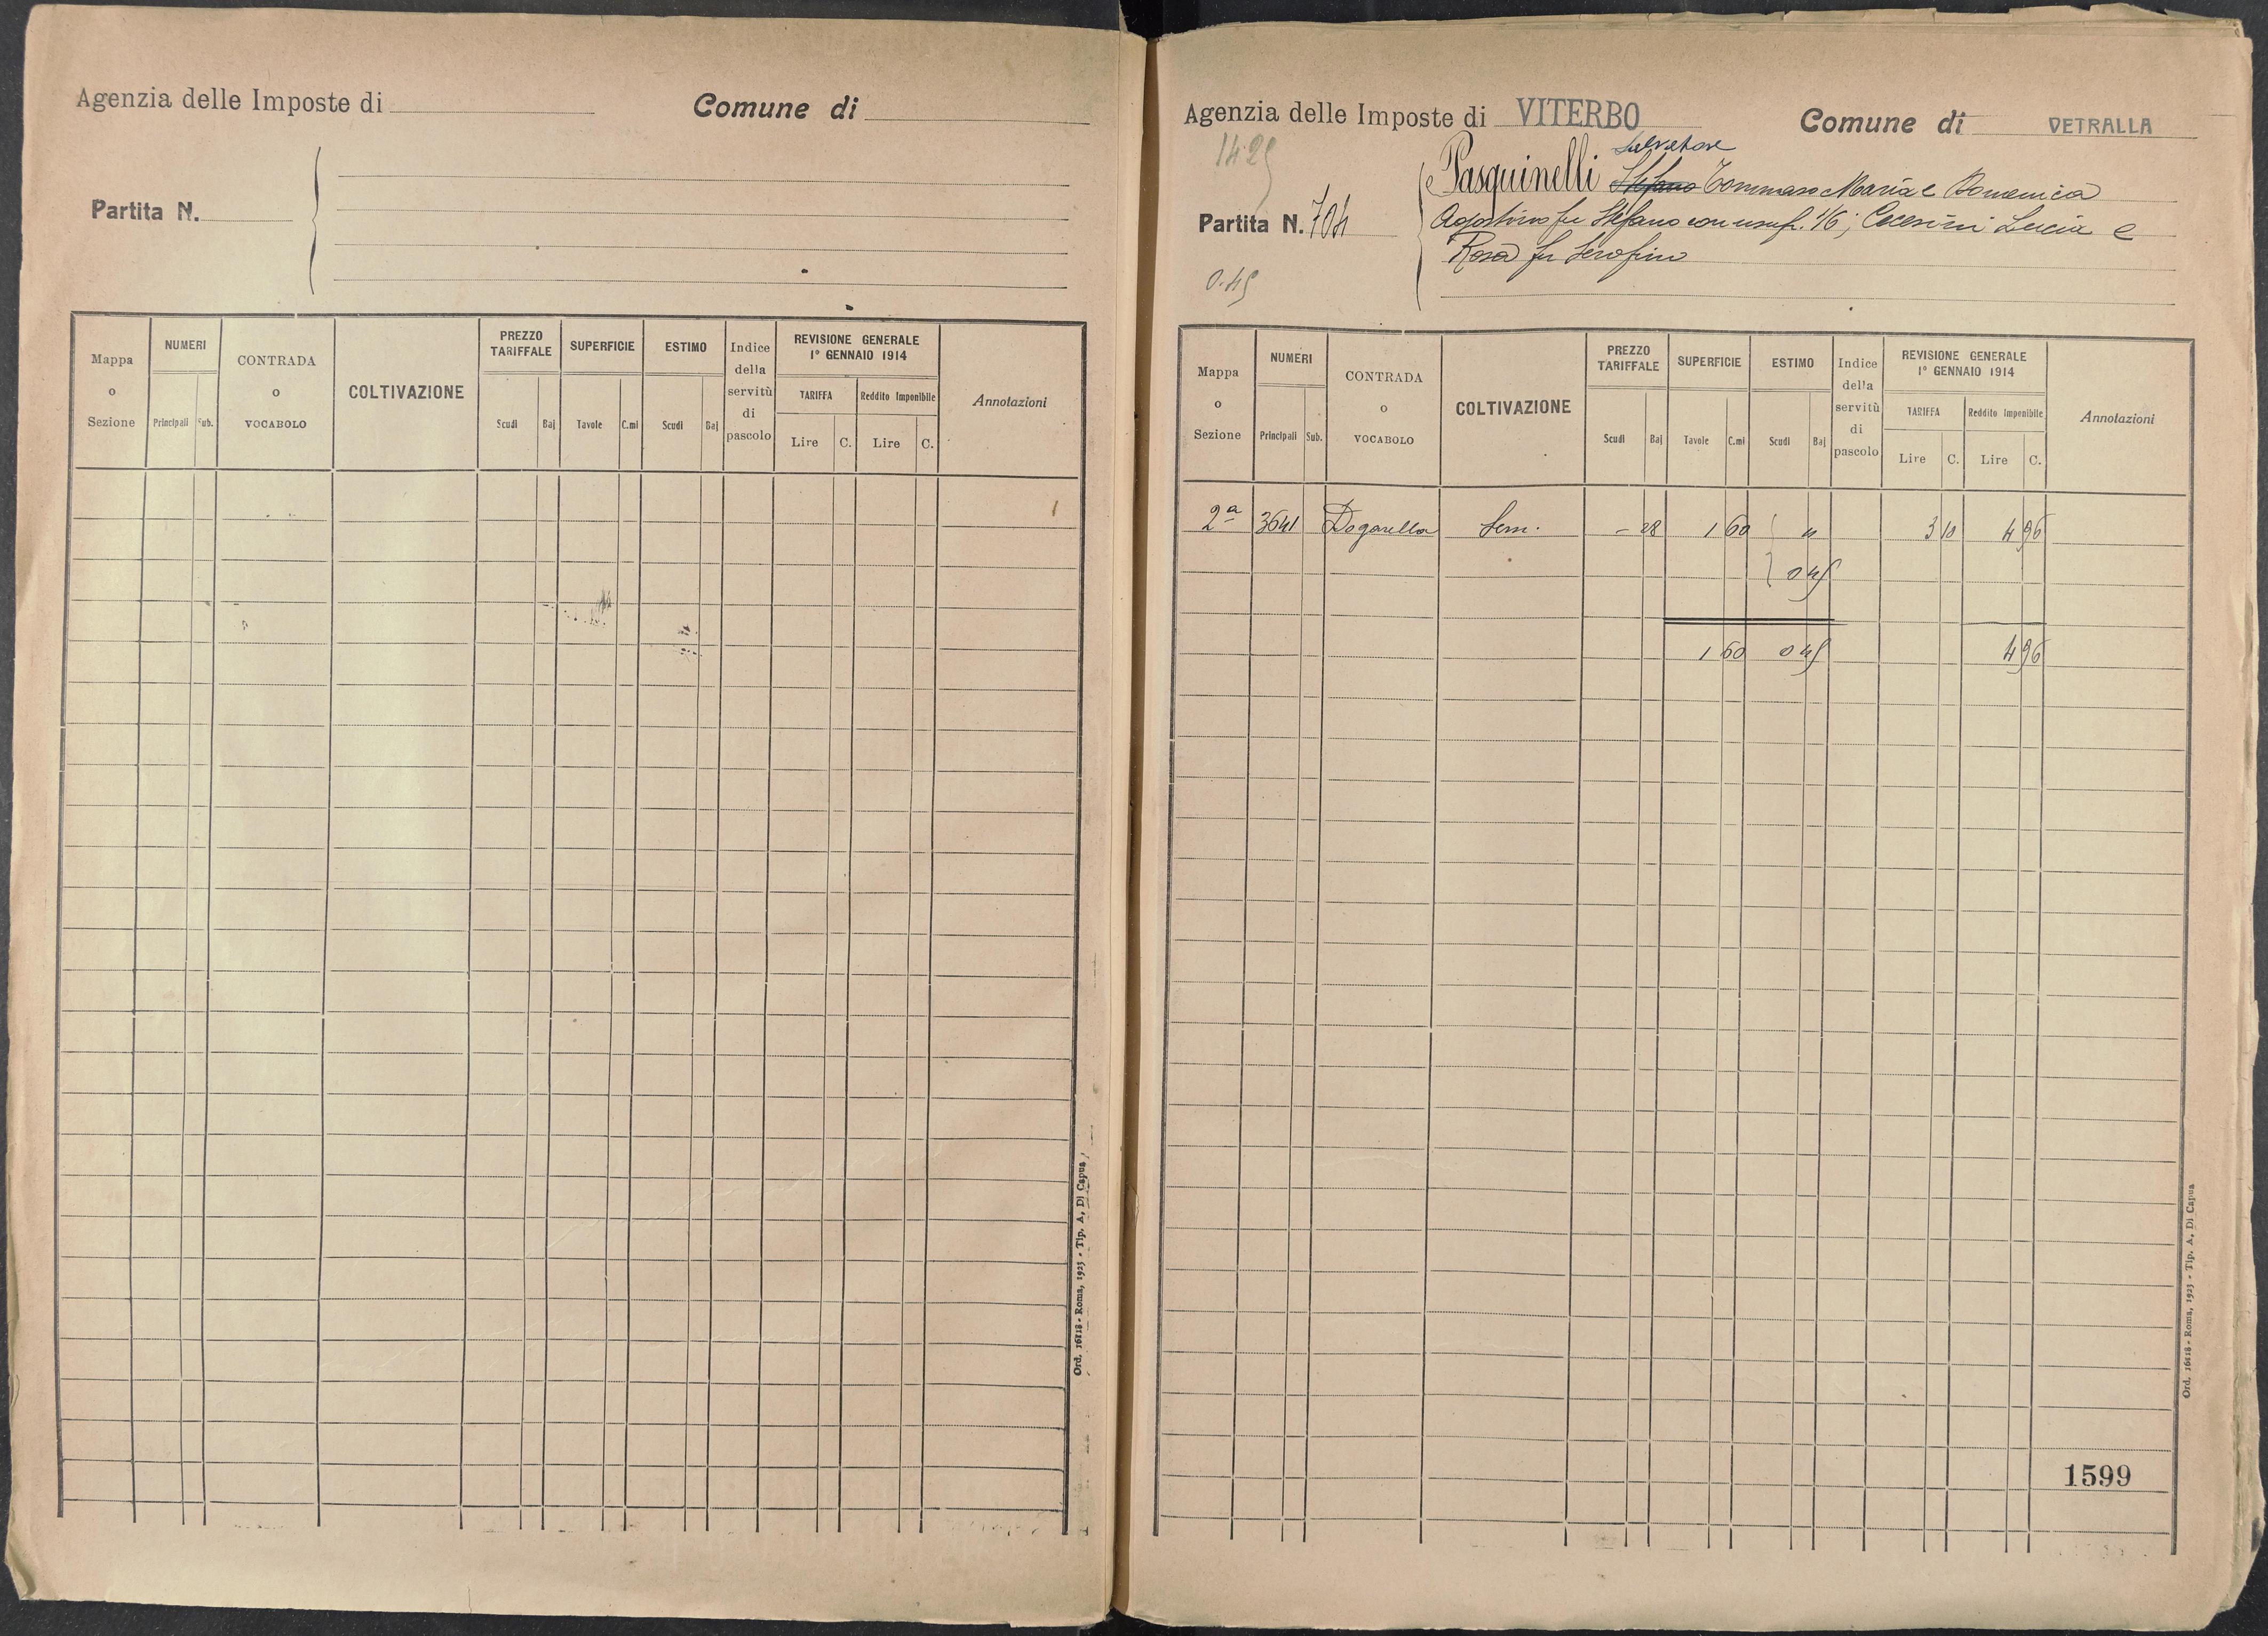 Agenzia delle Imposte di
Comune di
Partita N.
Mappa o Sezione
NUMERI
Principali
Sub.
CONTRADA o VOCABOLO
COLTIVAZIONE
PREZZO TARIFFALE
Scudi
Baj
SUPERFICIE
Tavole
C.mi
ESTIMO
Scudi
Baj
Indice della servitù di pascolo
REVISIONE GENERALE 1° GENNAIO 1914
TARIFFA
Lire
C.
Reddito Imponibile
Lire
C.
Annotazioni
Ord. 16118 - Roma, 1923 - Tip. A. Di Capua
Agenzia delle Imposte di VITERBO
Comune di VETRALLA
1425
Salvatore
Partita N. 704
Pasquinelli Stefano Tommaso Maria e Domenica
Agostino fu Stefano con usuf. 1/6; Cecerini Lucia e
Rosa fu Serafino
0.45
Mappa o Sezione
NUMERI
Principali
Sub.
CONTRADA o VOCABOLO
COLTIVAZIONE
PREZZO TARIFFALE
Scudi
Baj
SUPERFICIE
Tavole
C.mi
ESTIMO
Scudi
Baj
Indice della servitù di pascolo
REVISIONE GENERALE 1° GENNAIO 1914
TARIFFA
Lire
C.
Reddito Imponibile
Lire
C.
Annotazioni
2a 3641 Dogarella Sem. - 28 1 60 " 3 10 4 96
0 45
1 60 0 45 4 96
1599
Ord. 16118 - Roma, 1923 - Tip. A. Di Capua